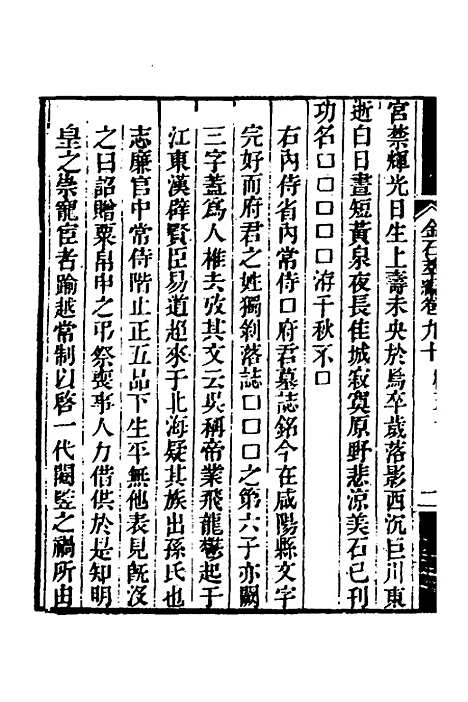 宮禁輝光日生上壽未央於焉卒歲落影西沉巨川東
逝白日晝短黃泉夜長佳城寂寞原野悲涼美石已刊
功名口口口口口游千秋不口
右內侍省內常侍口府君墓誌銘今在咸陽縣文字
完好而府君之姓獨剝落誌口口口之第六子亦闕
三字蓋爲人椎去攷其文云吳稱帝業飛龍鬱起于
江東漢辟賢臣易道超來于北海疑其族出孫氏也
志廉官中常侍階止正五品下生平無他表見旣沒
之日詔贈粟帛申之弔祭喪事人力借供於是知明
皇之崇寵臣者踰越常制以啓一代閹監之禍所由
金石萃編卷九十
二